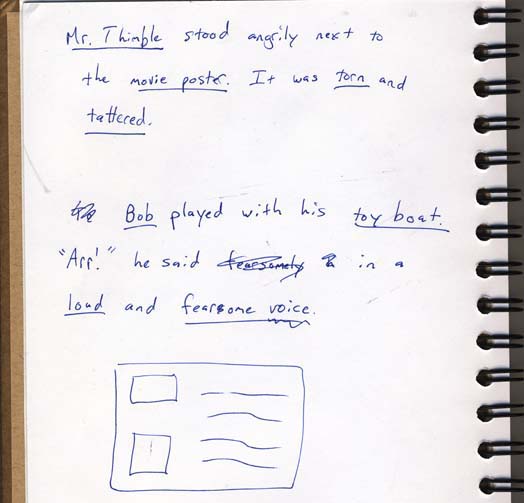 Mr. Thimble stood angrily next to
the movie poster. It was torn and
tattered.
Bob played with his toy boat.
"Arr!" he said fearsomely in a
loud and fearsome voice.